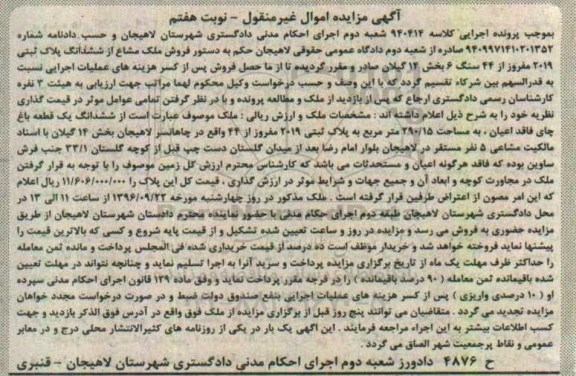 آگهی مزایده اموال غیرمنقول - نوبت هفتم
بموجب پرونده اجرایی کلاسه ۹۴۰۴۱۴ شعبه دوم اجرای احکام مدنی دادگستری شهرستان لاهیجان و حسب دادنامه شماره
۹۴۰۹۹۷۱۴۱۰۲۰۱۳۵۲ صادره از شعبه دوم دادگاه عمومی حقوقی لاهیجان حکم به دستور فروش ملک مشاع از ششدانگ پلاک ثبتی
۲۰۱۹ مفروز از ۴۴ سنگ ۶ بخش ۱۴ گیلان صادر و مقرر گردیده تا از ما حصل فروش پس از کسر هزینه های عملیات اجرایی نسبت
به قدرالسهم بین شرکاء تقسیم گردد که با این وصف و حسب درخواست وکیل محکوم لهما مراتب جهت ارزیابی به هیئت ۳ نفره
کارشناسان رسمی دادگستری ارجاع که پس از بازدید از ملک و مطالعه پرونده و با در نظر گرفتن تمامی عوامل موثر در قیمت گذاری
نظریه خود را به شرح ذیل اعلام داشته اند : مشخصات ملک و ارزش ریالی : ملک موصوف عبارت است از ششدانگ یک قطعه باغ
چای فاقد اعیان ، به مساحت ۲۹۰/۱۵ متر مربع به پلاک ثبتی ۲۰۱۹ مفروز از ۴۴ واقع در چاهانسر لاهیجان بخش ۱۴ گیلان با اسناد
مالکیت مشاعی ۵ نفر مستقر در لاهیجان بلوار امام رضا بعد از میدان گلستان دست چپ قبل از کوچه گلستان ۳۳/۱ جنب فرش
ساوین بوده که فاقد هرگونه اعیان و مستحدثات می باشد که کارشناس محترم ارزش کل زمین موصوف را با توجه به قرار گرفتن
ملک در مجاورت کوچه و ابعاد آن و جمیع جهات و شرایط موثر در ارزش گذاری ، قیمت کل این پلاک را ۱۱/۶۰۶/۰۰۰/۰۰۰ ریال اعلام
که این امر مصون از اعتراض طرفین قرار گرفته است . ملک مذکور در روز چهارشنبه مورخه ۱۳۹۶/۰۹/۲۲ از ساعت ۱۱ الی ۱۳ در
محل دادگستری شهرستان لاهیجان طبقه دوم اجرای حکام مدنی با حضور نماینده محترم دادستان شهرستان لاهیجان از طریق
مزایده حضوری به فروش می رسد و مزایده در روز و ساعت تعیین شده تشکیل و از قیمت پایه شروع و کسی که بالاترین قیمت را
پیشنهاد نماید فروخته خواهد شد و خریدار موظف است ده درصد از قیمت خریداری شده فی المجلس پرداخت و مانده ثمن معامله
را حداکثر ظرف مهلت یک ماه از تاریخ برگزاری مزایده پرداخت و سرید آنرا به اجرا تسلیم نماید و چنانچه نتواند در مهلت تعیین
شده باقیمانده ثمن معامله ( ۹۰ درصد باقیمانده ) را در فرجه مقرر پرداخت نماید و وفق ماده ۱۳۹ قانون اجرای احکام مدنی سپرده
او ( ۱۰ درصدی واریزی ) پس از کسر هزینه های عملیات اجرایی بنفع صندوق دولت ضبط و در صورت درخواست مجدد خواهان
مزایده تجدید می گردد . متقاضیان می توانند پنج روز قبل از برگزاری مزایده از ملک فوق واقع در آدرس فوق الذکر بازدید و جهت
کسب اطلاعات بیشتر به این اجراء مراجعه فرمایند . این آگهی یک بار در یکی از روزنامه های کثیرالانتشار محلی درج و در معابر
عمومی و نقاط پرجمعیت شهر الصاق می گردد .
ح ۴۸۷۶ دادورز شعبه دوم اجرای احکام مدنی دادگستری شهرستان لاهیجان - قنبری